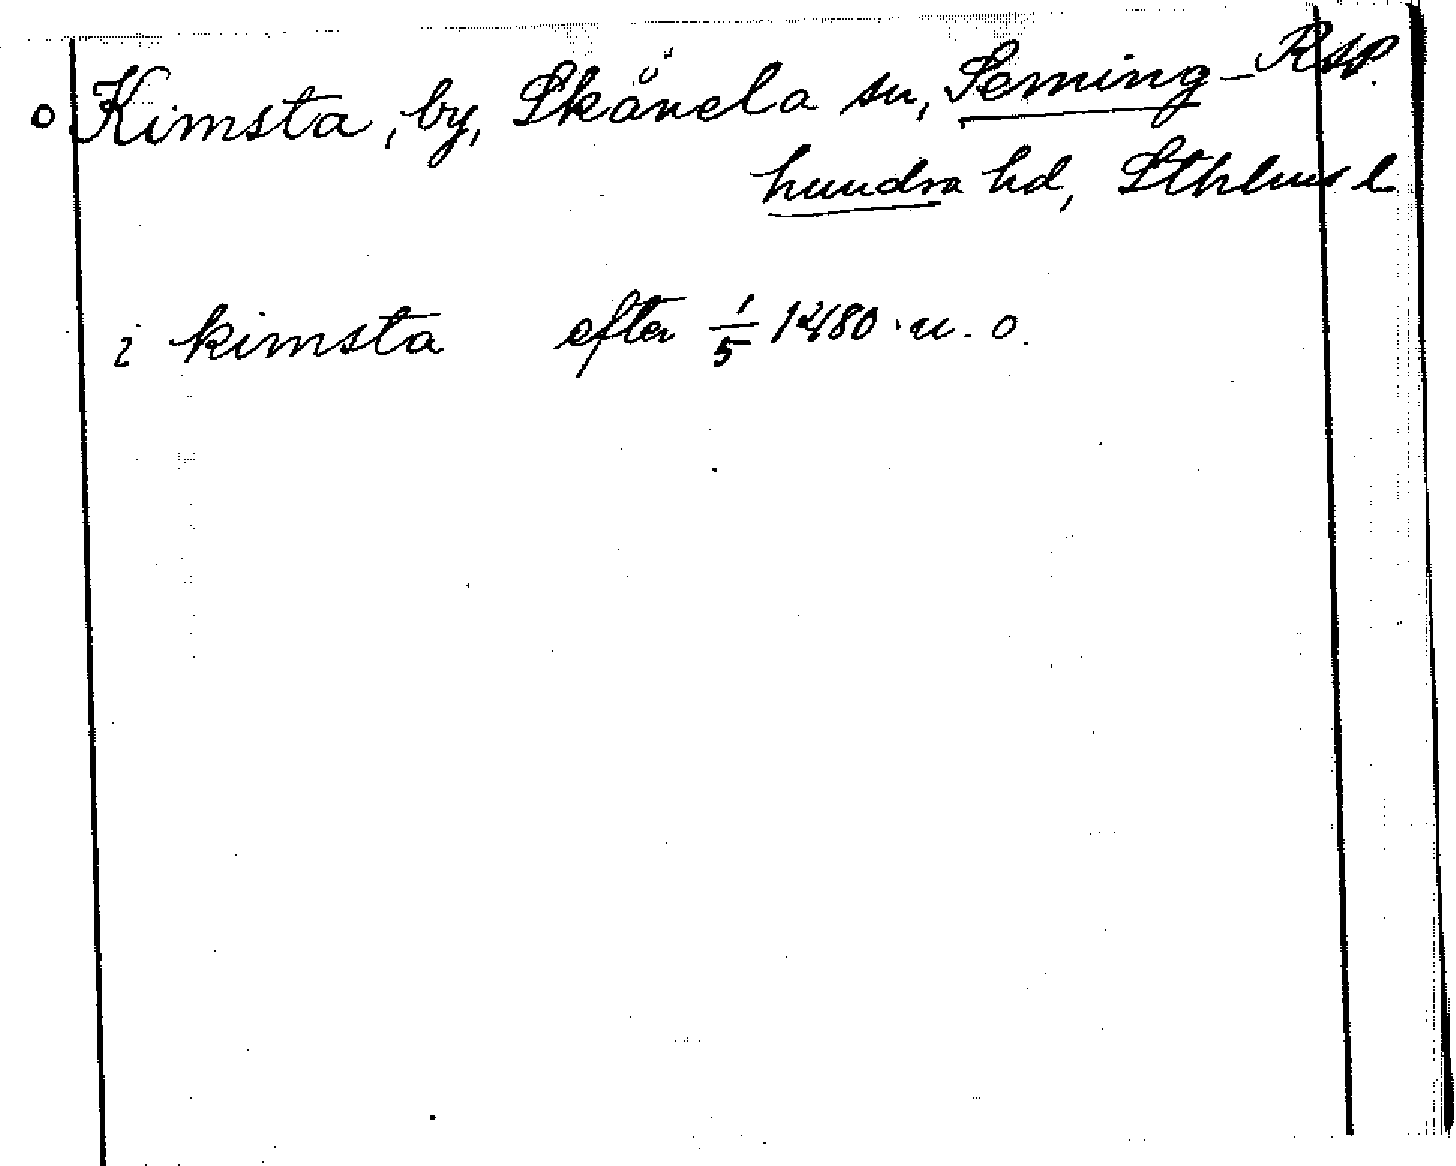 o Kimsta, by, Skånela sn, Seming- Rsp.
hundra hd, Sthlms l
i kimsta efter 1/5 1480 . u. o.